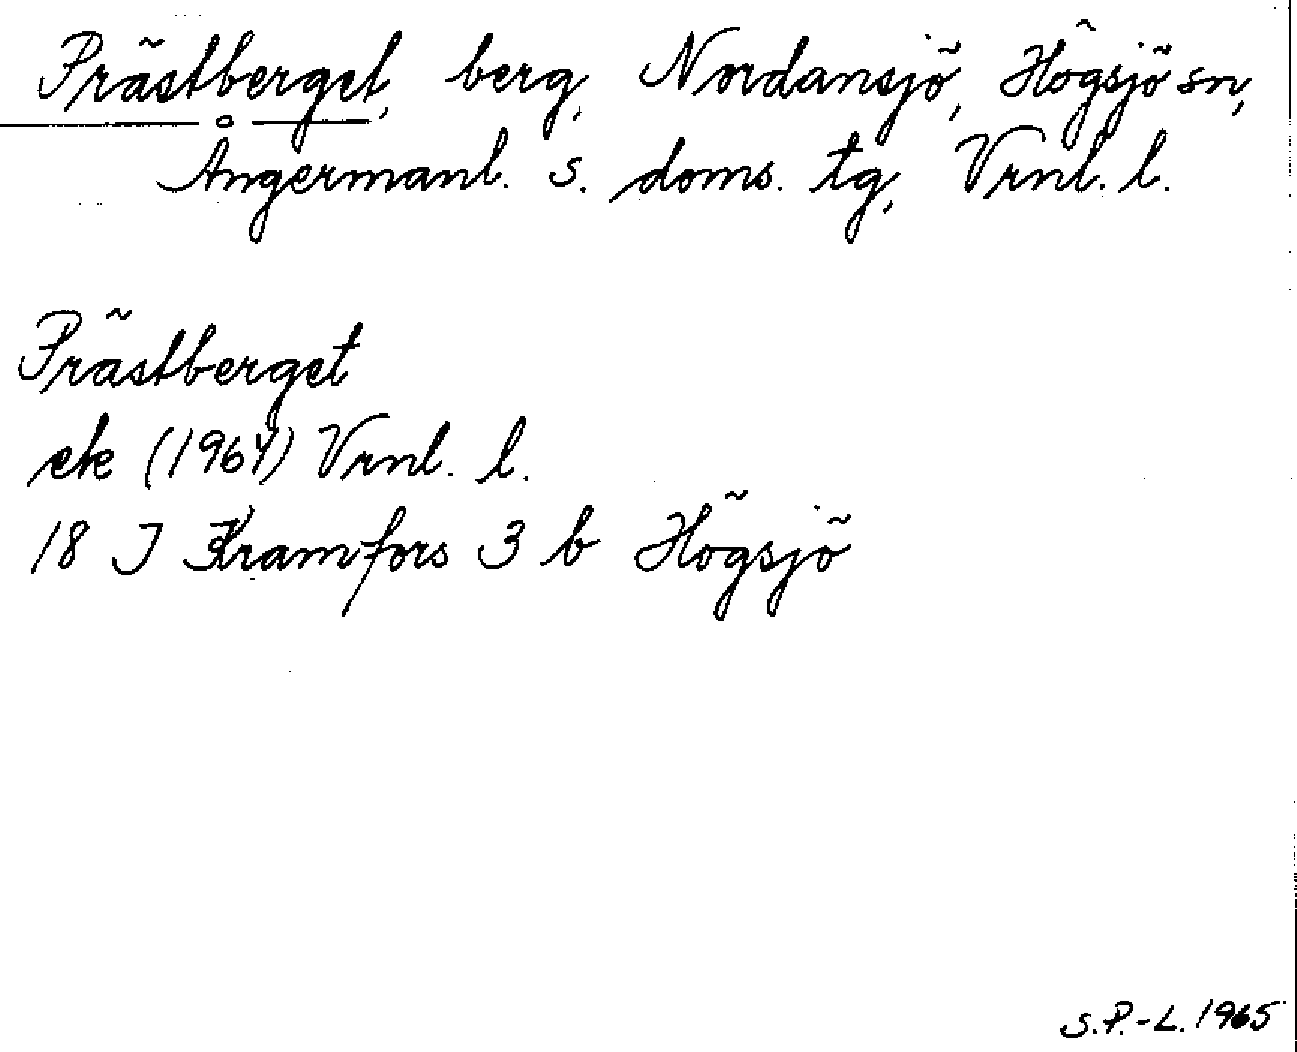 Prästberget, berg, Nordansjö, Högsjö sn,
Ångermanl. s. doms. tg, Vrnl. l.
Prästberget
ek (1964) Vrnl. l.
18 I Kramfors 3 b Högsjö
S.P.-L. 1965